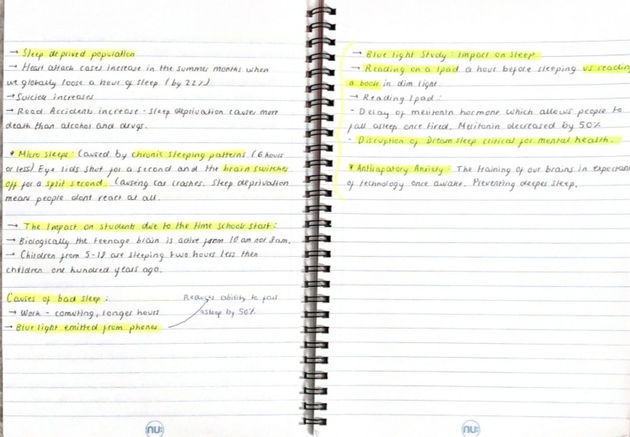 → Sleep deprived population
→ Heart attack cases increase in the summer months when
we globally loose a hour of sleep (by 22%)
→ Suicide increases
→ Road Accidents increase - Sleep deprivation causes more
death than alcohol and drugs.
* Micro sleeps: Caused by chronic sleeping patterns (6 hours
or less). Eye lids shut for a second and the brain switches
off for a split second. Causing car crashes. Sleep deprivation
means people dont react at all.
→ The Impact on students due to the time school start:
→ Biologically the teenage brain is active from 10 am not 8am.
→ Children from 5-18 are sleeping two hours less then
children one hundred years ago.
Causes of bad sleep:
→ Work - comuting, longer hours
→ Blue light emitted from phones
Reduces ability to fall
asleep by 50%
nu:
→ Blue light Study: Impact on sleep
→ Reading on a Ipad a hour before sleeping vs reading
a book in dim light.
→ Reading Ipad:
- Delay of melitonin hormone which allows people to
fall asleep once tired. Melitonin decreased by 50%
- Disruption of Dream sleep critical for mental health.
* Anticapatory Anxiety: The training of our brains in
of technology once awake. Preventing deeper sleep.
nu: